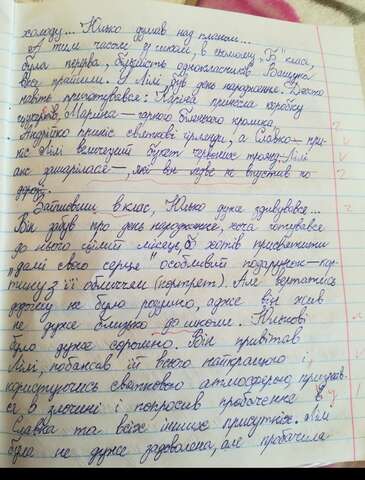 холоду... Юлько думав над планом...
А тим часом у школі, в сьомому „Б" класі,
була перерва, більшість однокласників
вже прийшли. У Лілі був день народження. Дехто
навіть приготувався: Каріна принесла коробку
цукерок, Марина — чорного білячого кролика,
Андрійко приніс святкові гірлянди, а Славко — при-
ніс Лілі величезний букет червоних троянд. Лілі
аж зашарілася —, які він ледве не відпустив по
дорозі.
Зайшовши в клас, Юлько дуже здивувався...
Він забув про день народження, хоча готувався
до нього цілий місяць, бо хотів присвятити
„дамі свого серця" особливий подарунок — кар-
тину з її обличчям (портрет). Але вертатись
додому не було розумно, адже він жив
не дуже близько до школи. Юлькові
було дуже соромно. Він привітав
Лілі, побажав їй всього найкращого і
користуючись святковою атмосферою, признав-
ся в злочині і попросив пробачення в
Славка та всіх інших присутніх. Лілі
була не дуже задоволена, але пробачила